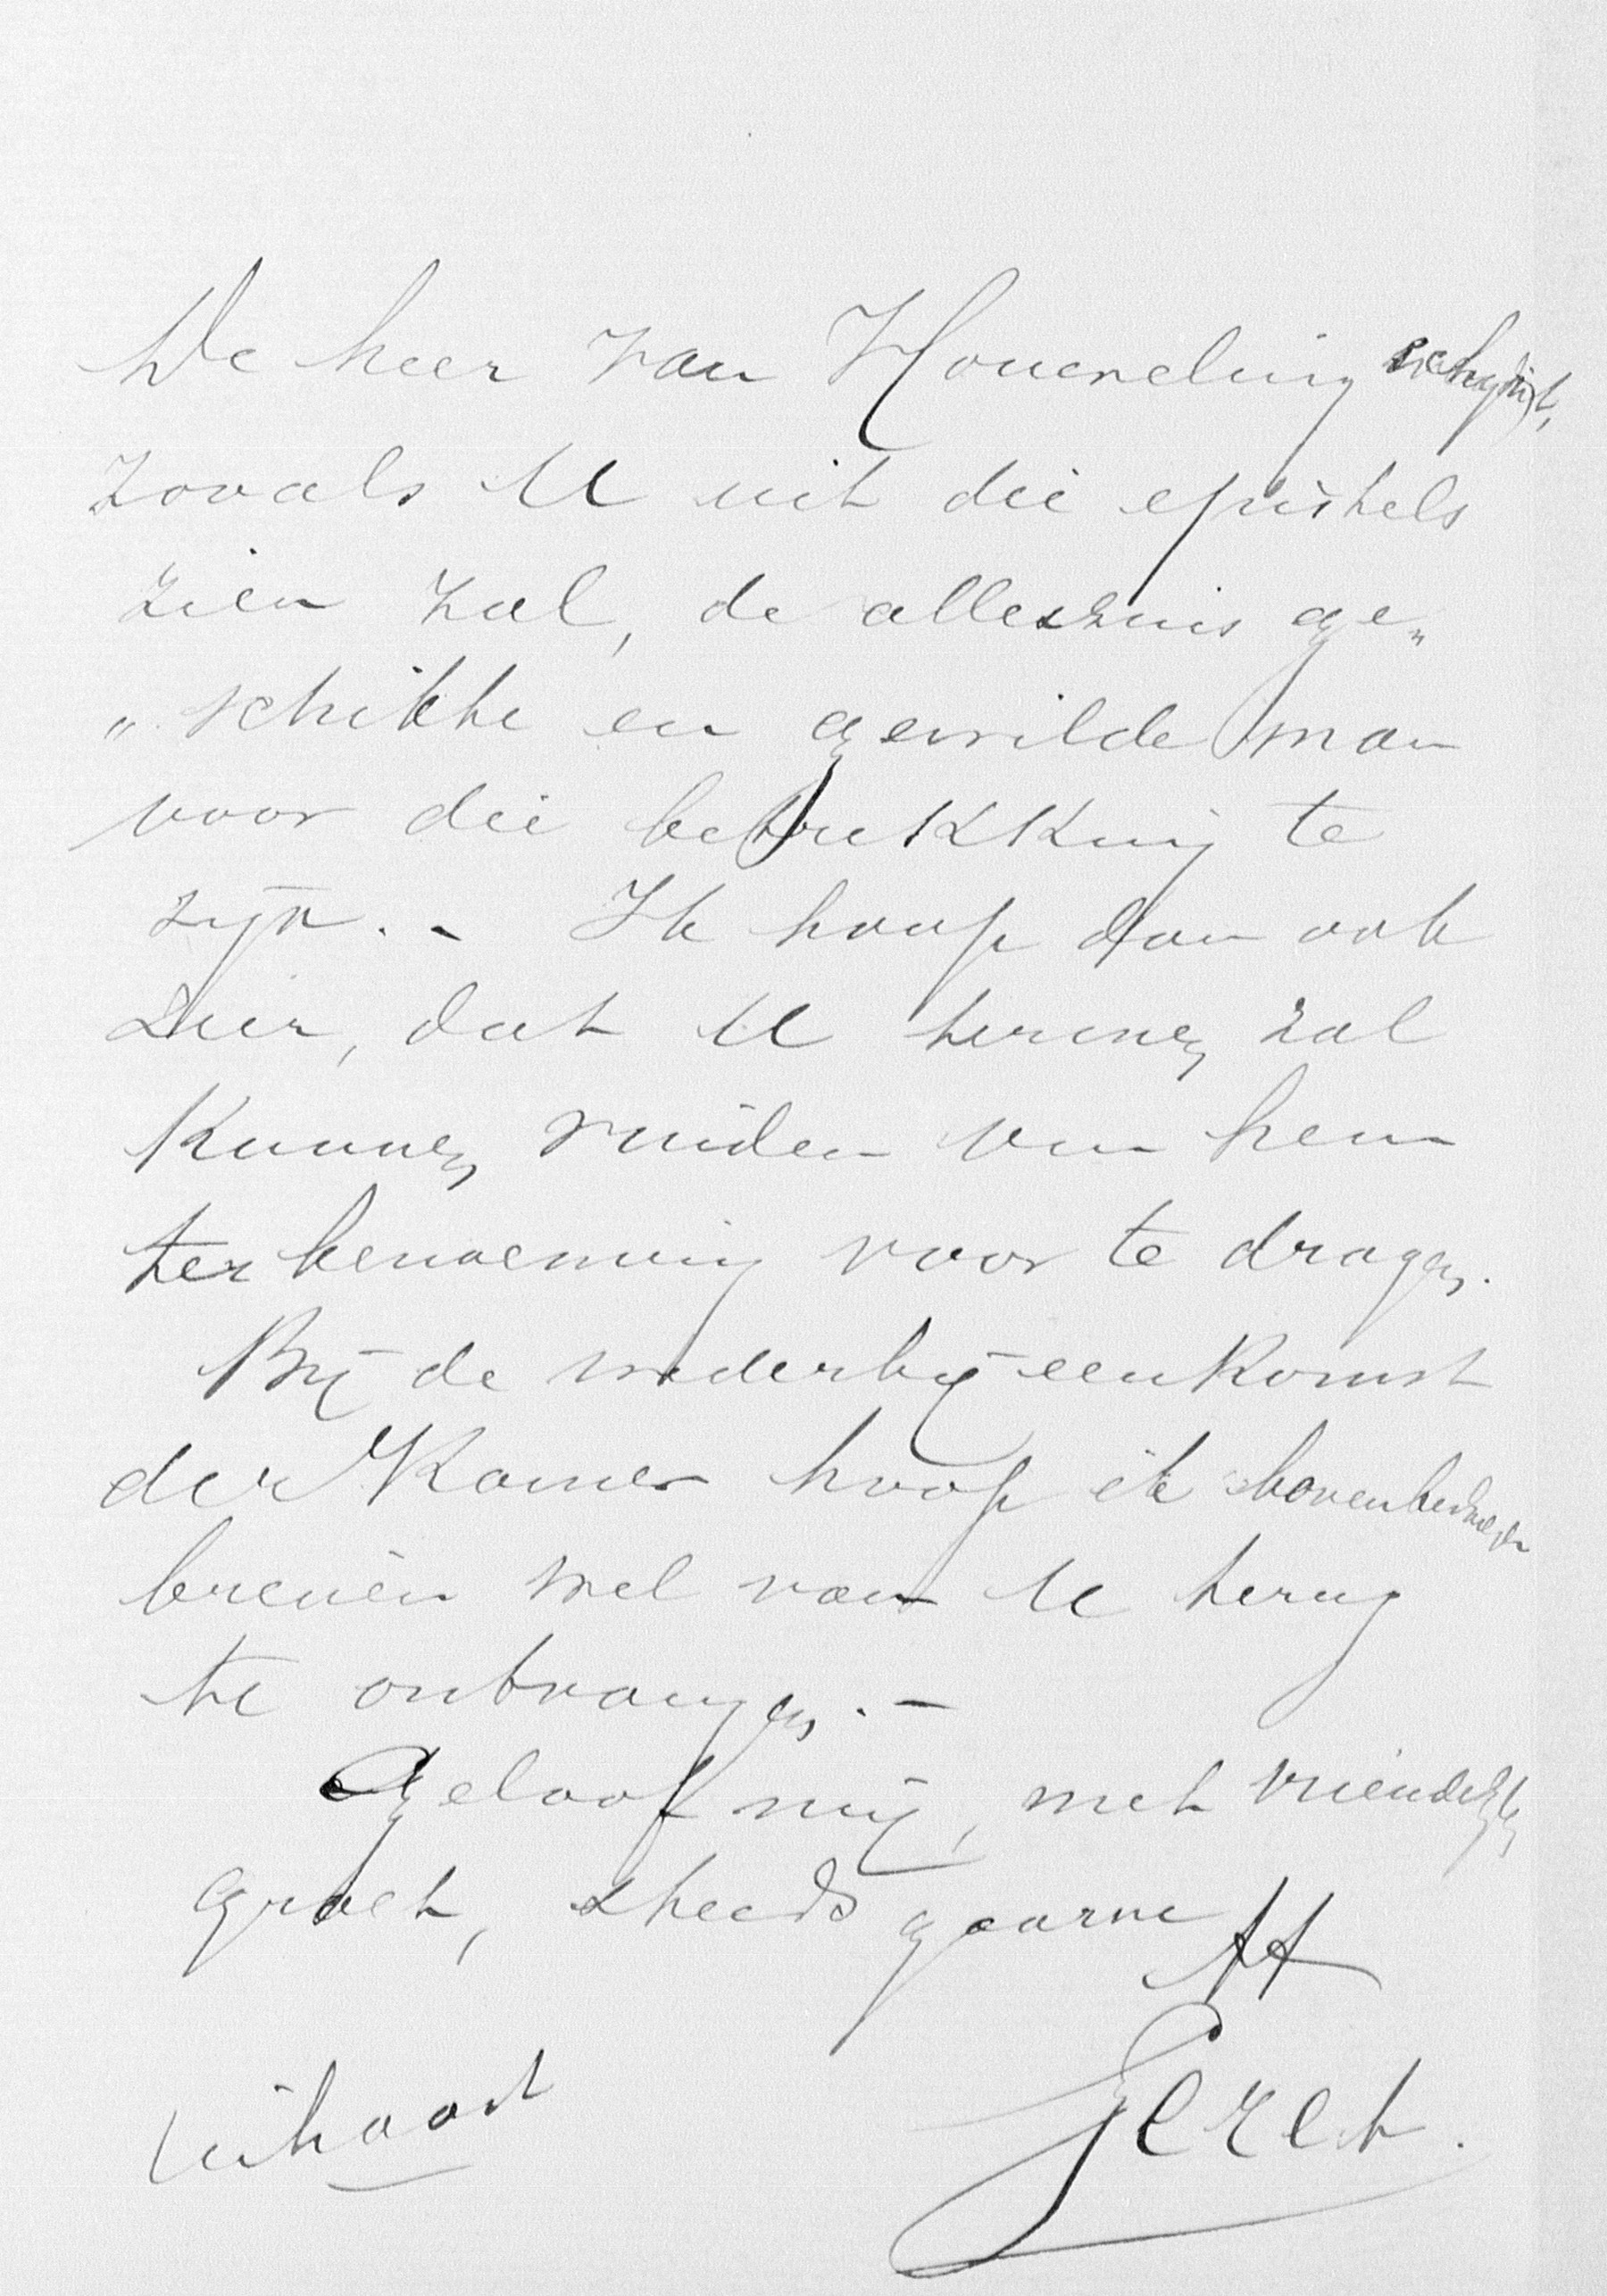 De heer van Houweling schijnt,
zooals U uit die epistels
zien zal, de alleszins ge„
„schikte en gewilde man
voor die betrekking te
zijn. - Ik hoop dan ook
zeer, dat U termen zal
kunnen vinden om hem
ter benoeming voor te dragen.
Bij de wederbijeenkomst
der Kamer hoop ik bovenbedoelde
breuen wel van U terug
te ontvangen. -
Geloof mij, met vriendelijke
groet, steeds gaarne
tt
in haast